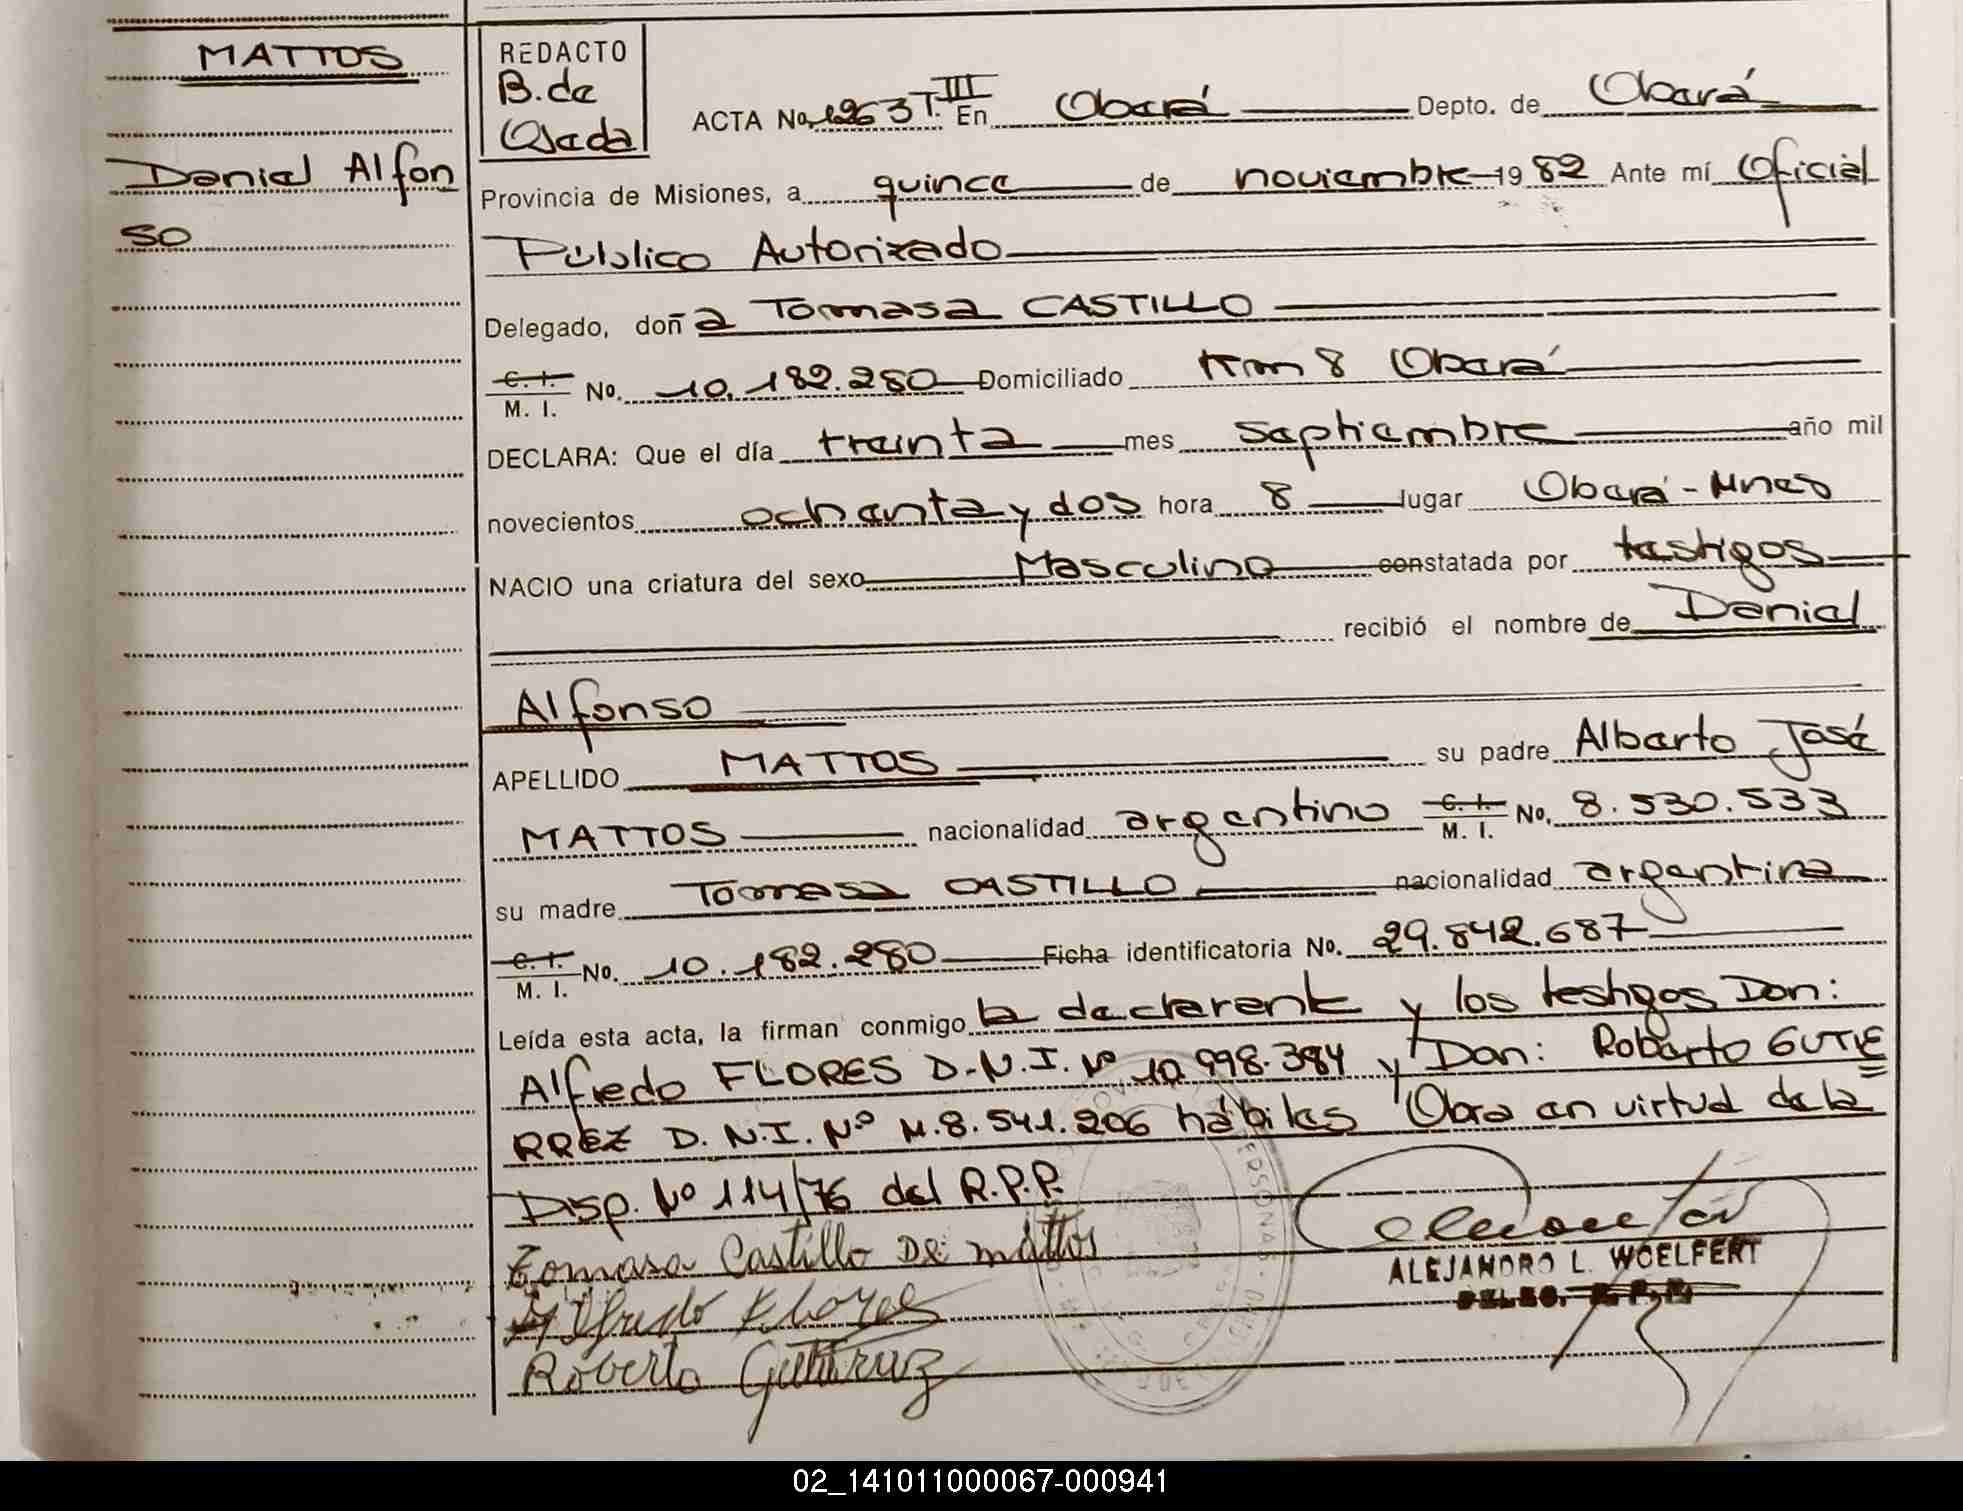 MATTOS
Daniel Alfon
so
REDACTO
B. de
Ojeda
ACTA No. 1263 T. III En Oberá Depto. de Oberá
Provincia de Misiones, a quince de noviembre 1982 Ante mí Oficial
Público Autorizado
Delegado, doña Tomasa CASTILLO
C. I.
M. I. No. 10.182.280 Domiciliado Km 8 Oberá
DECLARA: Que el día treinta mes septiembre año mil
novecientos ochenta y dos hora 8 lugar Oberá - Mnes
NACIO una criatura del sexo Masculino constatada por testigos
recibió el nombre de Daniel
Alfonso
APELLIDO MATTOS su padre Alberto José
MATTOS nacionalidad argentino C. I. M. I. No. 8.530.533
su madre Tomasa CASTILLO nacionalidad argentina
C. I.
M. I. No. 10.182.280 Ficha identificatoria No. 29.842.687
Leída esta acta, la firman conmigo la declarente y los testigos Don:
Alfredo FLORES D.N.I. Nº 10.998.384 y Don: Roberto GUTIE
RREZ D.N.I. Nº M.8.541.206 hábiles Obra en virtud de la
Disp. Nº 114/76 del R.P.P.
Tomasa Castillo De mattos
Alfredo Flores
Roberto Gutierrez
ALEJANDRO L. WOELFERT
DELEG. R. P. P.
02_141011000067-000941